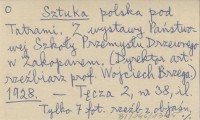 Sztuka polska pod
Tatrami. Z wystawy Państwo-
wej Szkoły Przemysłu Drzewnego
w Zakopanem. (Dyrektor art.
rzeźbiarz prof. Wojciech Brzega)
1928. — Tęcza 2, nr 38, il.
Tylko 7 fot. rzeźb z objaśn.